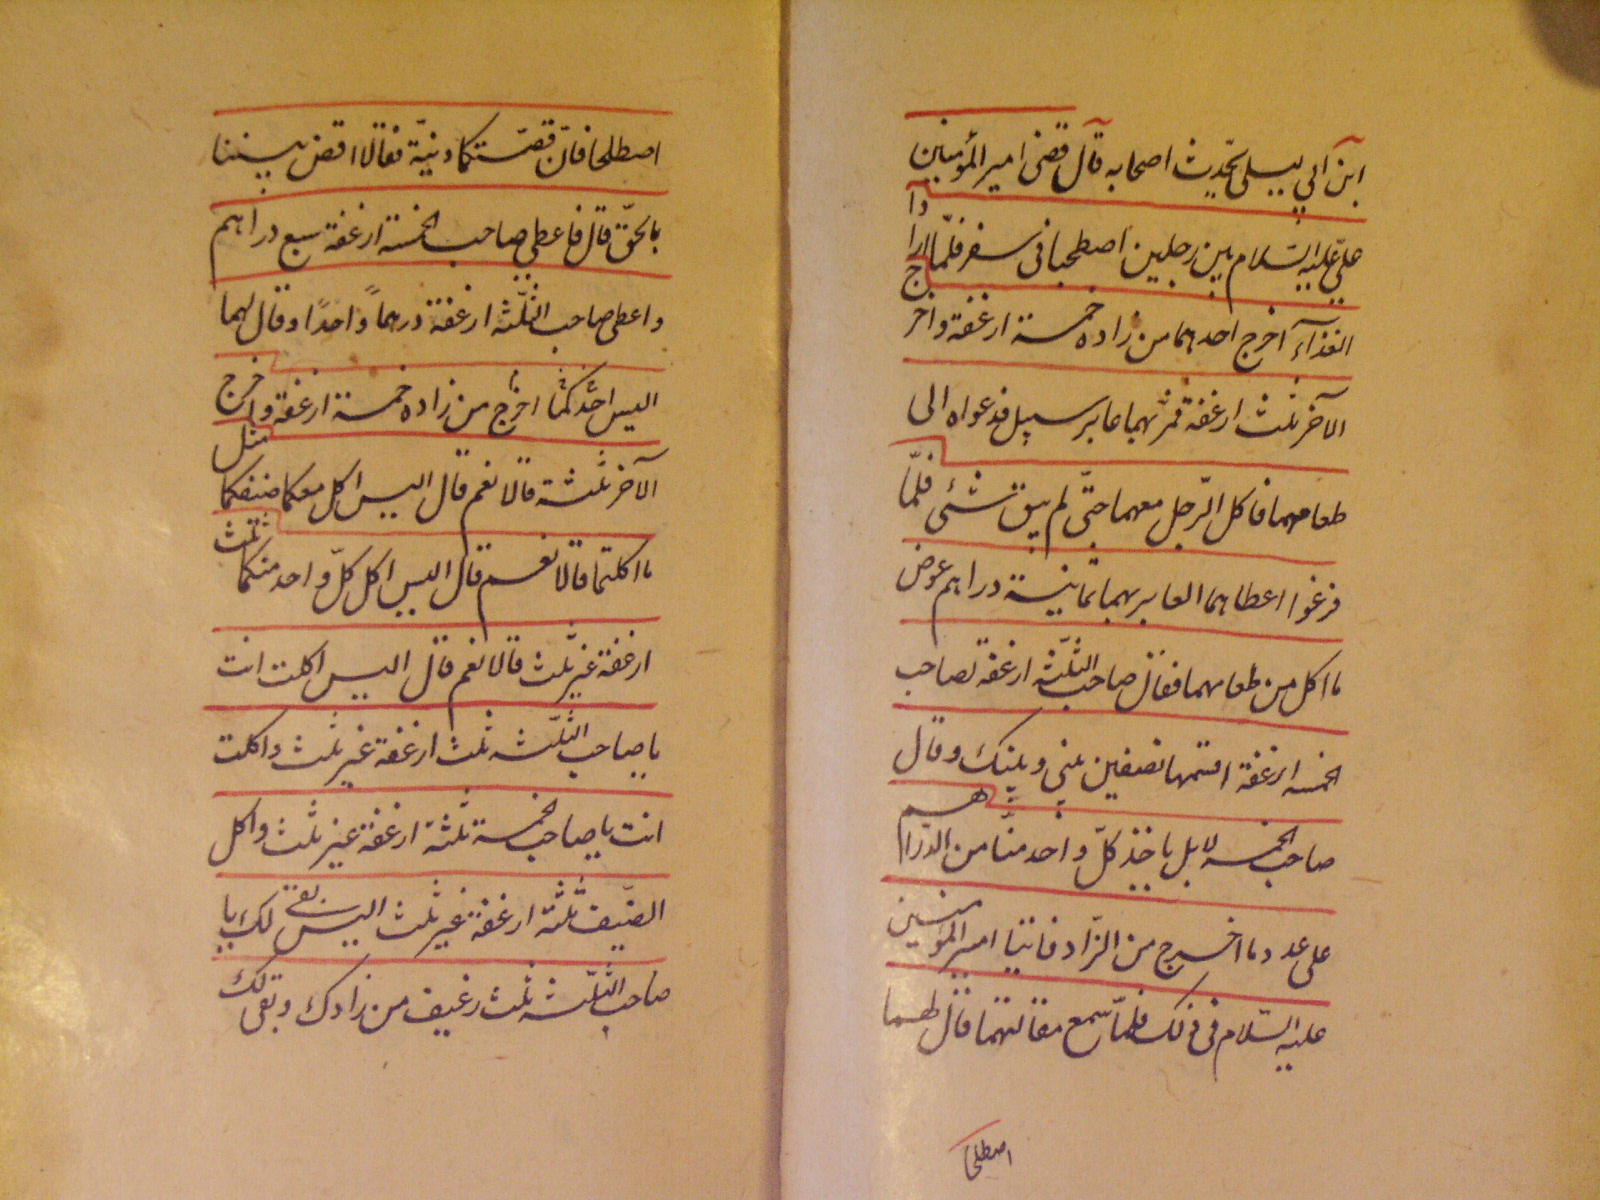 ابن أبي ليلى يحدّث اصحابه قال قضى امير المؤمنين
علىّ عليه السّلام بين رجلين اصطحبا فى سفر فلمّا ارادا
الغذآء اخرج احدهما من زاده خمسة ارغفة واخرج
الآخر ثلث ارغفة فمرّ بهما عابر سبيل فدعواه الى
طعامهما فاكل الرّجل معهما حتّى لم يبق شئ فلمّا
فرغوا اعطاهما العابر بهما ثمانية دراهم عوض
ما اكل من طعامهما فقال صاحب الثّلثة ارغفة لصاحب
الخمسه ارغفة اقسمها نصفين بينى وبينك وقال
صاحب الخمسه لا بل ياخذ كلّ واحد منّا من الدّراهم
على عدد ما اخرج من الزّاد فاتيا امير المؤمنين
عليه السّلام فى ذلك فلمّا سمع مقالتهما قال لهما
اصطلحا
اصطلحا فانّ قصّتكما دنيّة فقالا اقض بيننا
بالحقّ قال فاعطى صاحب الخمسة ارغفة سبع دراهم
واعطى صاحب الثّلثه ارغفة درهماً واحدًا وقال لهما
اليس احدكما اخرج من زاده خمسة ارغفة واخرج
الآخر ثلثة قالا نعم قال اليس اكل معكما ضيفكما مثل
ما اكلتما قالا نعم قال اليس اكل كلّ واحد منكما ثلث
ارغفة غير ثلث قالا نعم قال اليس اكلت انت
يا صاحب الثّلثه ثلث ارغفة غير ثلث واكلت
انت يا صاحب الخمسة ثلثة ارغفة غير ثلث واكل
الضّيف ثلثة ارغفة غير ثلث اليس بقى لك يا
صاحب الثّلثه ثلث رغيف من زادك وبقى لك